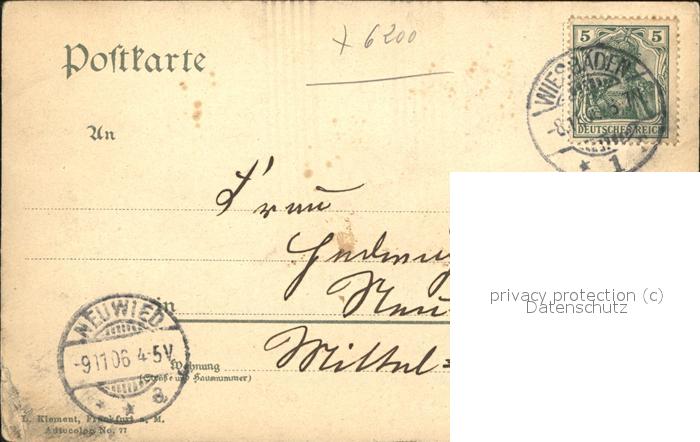 Postkarte
+ 6200
5 5
DEUTSCHES REICH
WIESBADEN
* 1
An
Frau
Hedwig
Neu
in
Mittel=
NEUWIED
-9.11.06 4-5V
* * a
Wohnung
(Straße und Hausnummer)
L. Klement, Frankfurt a. M.
Autocolor No. 77
privacy protection (c)
Datenschutz